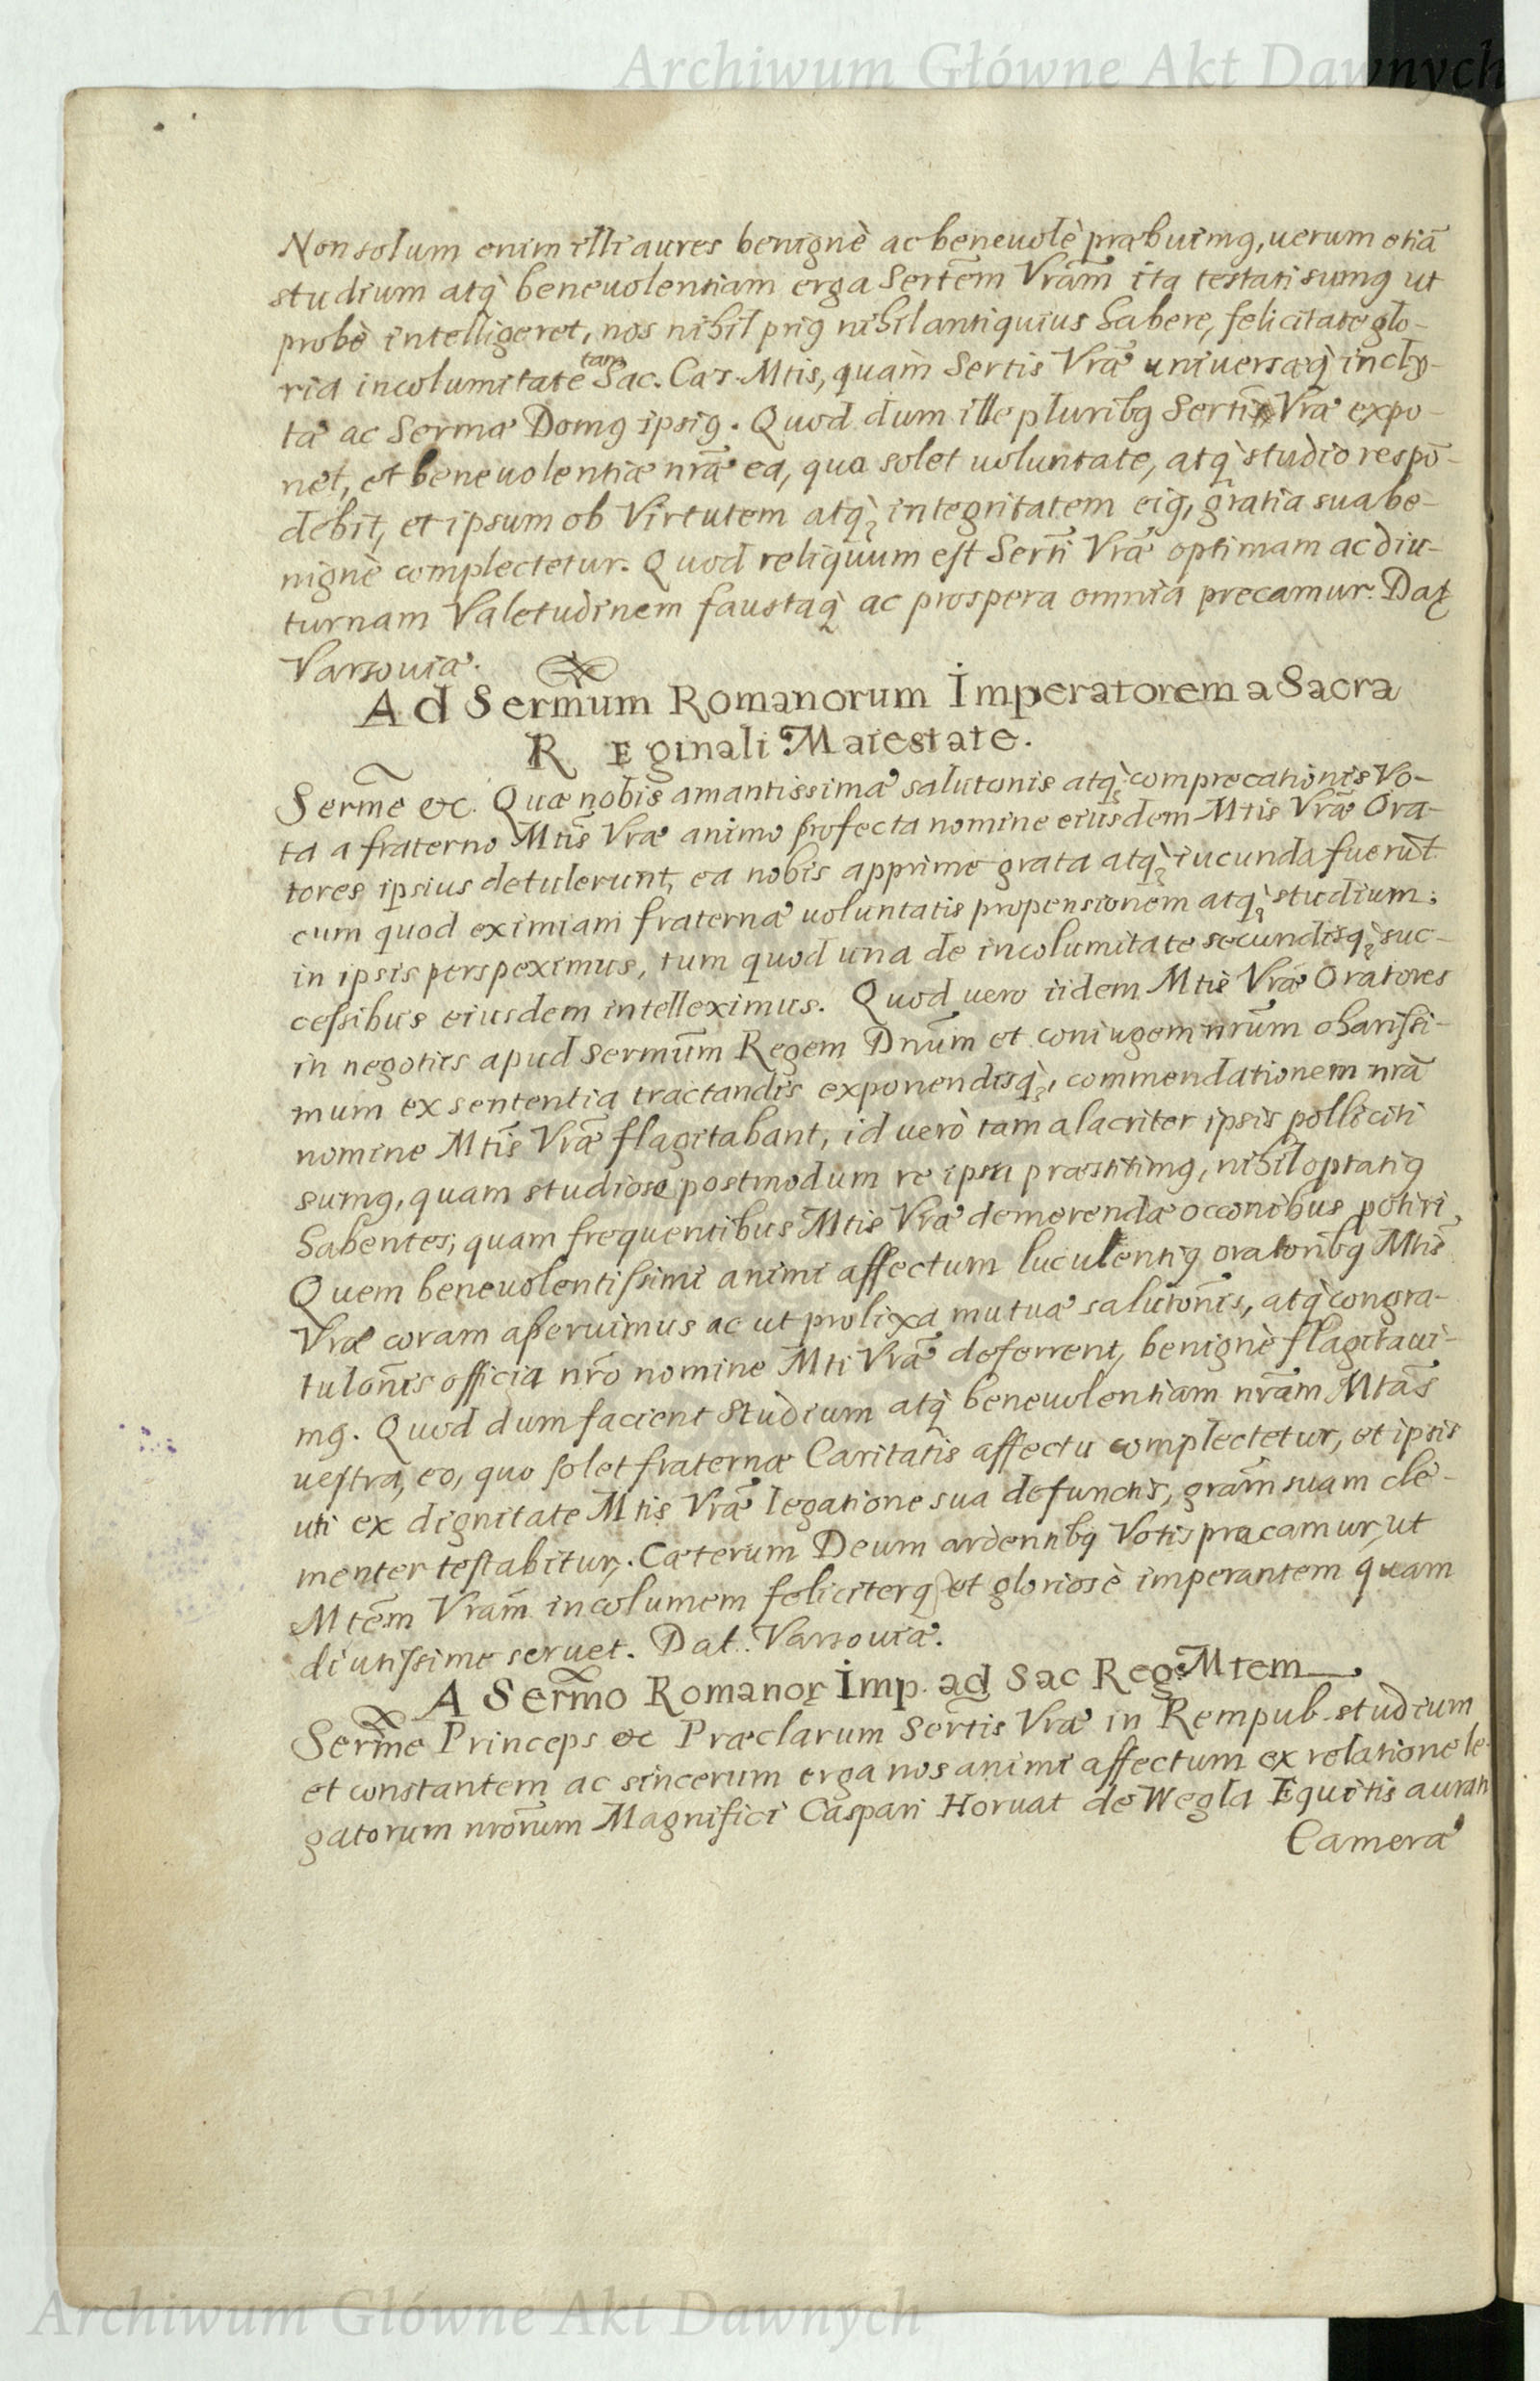 Archiwum Główne Akt Dawnych
Non solum enim illi aures benignè ac beneuolè præbuimꝰ, uerum etiā
studium atq̀ beneuolentiam erga Sertēm Vrām ita testati sumꝰ ut
probè intelligeret, nos nihil priꝰ nihil antiquius habere, felicitate glo-
ria incolumitate tam Sac. Cæs. Mtis, quàm Sertis Vrǣ uniuersæq̀ incly-
tæ ac Sermæ Domꝰ ipsiꝰ. Quod dum ille pluribꝰ Serti Vrǣ expo-
net, et beneuolentiæ nrǣ ea, qua solet uoluntate, atq̀ studio respō-
debit, et ipsum ob Virtutem atq̀ integritatem eiꝰ, gratia sua be-
nignè complectetur. Quod reliquum est Serti Vrǣ optimam ac diu-
turnam Valetudinem faustaq̀ ac prospera omnia precamur. Dat
Varsouiæ.
Ad Sermum Romanorum Imperatorem a Sacra
REginali Maiestate.
Serme etc. Quæ nobis amantissimæ salutonis atq̀ comprecationis Vo-
ta a fraterno Mtis Vræ animo profecta nomine eiusdem Mtis Vrǣ Ora-
tores ipsius detulerunt, ea nobis apprime grata atq̀ iucunda fuerūt
cum quod eximiam fraternæ uoluntatis propensionem atq̀ studium
in ipsis perspeximus, tum quod una de incolumitate secundisq̀ suc-
cessibus eiusdem intelleximus. Quod uero iidem Mtis Vrǣ Oratores
in negotiis apud Sermūm Regem Dnūm et coniugem nrūm charissi-
mum ex sententia tractandis exponendisq̀, commendationem nrā
nomine Mtis Vrǣ flagitabant, id uerò tam alacriter ipsis polliciti
sumꝰ, quam studiose postmodum re ipsa præstitimꝰ, nihil optatiꝰ
habentes, quam frequentibus Mtis Vrǣ demerendæ occonibus potiri
Quem beneuolentissimi animi affectum luculentiꝰ oratoribꝰ Mtis
Vræ coram aperuimus ac ut prolixa mutuæ salutonis, atq̀ congra-
tulonis officia nrō nomine Mti Vrǣ deferrent, benignè flagitaui-
mꝰ. Quod dum facient studium atq̀ beneuolentiam nrām Mtās
uestra, eo, quo solet fraternæ Caritatis affectu complectetur, et ipsis
uti ex dignitate Mtis Vrǣ legatione sua defunctis, grām suam cle-
menter testabitur. Cæterum Deum ardentibꝰ Votis præcamur, ut
Mtēm Vrām incolumem feliciterq̀ et gloriosè imperantem quam
diutissime seruet. Dat. Varsouiæ.
A Sermo Romanor Imp. ad Sac Reg. Mtem
Serme Princeps etc Præclarum Sertis Vræ in Rempub. studium
et constantem ac sincerum erga nos animi affectum ex relatione le-
gatorum nrōrum Magnifici Caspari Horuat de Wegla Equitis aurati
Cameræ
Archiwum Główne Akt Dawnych